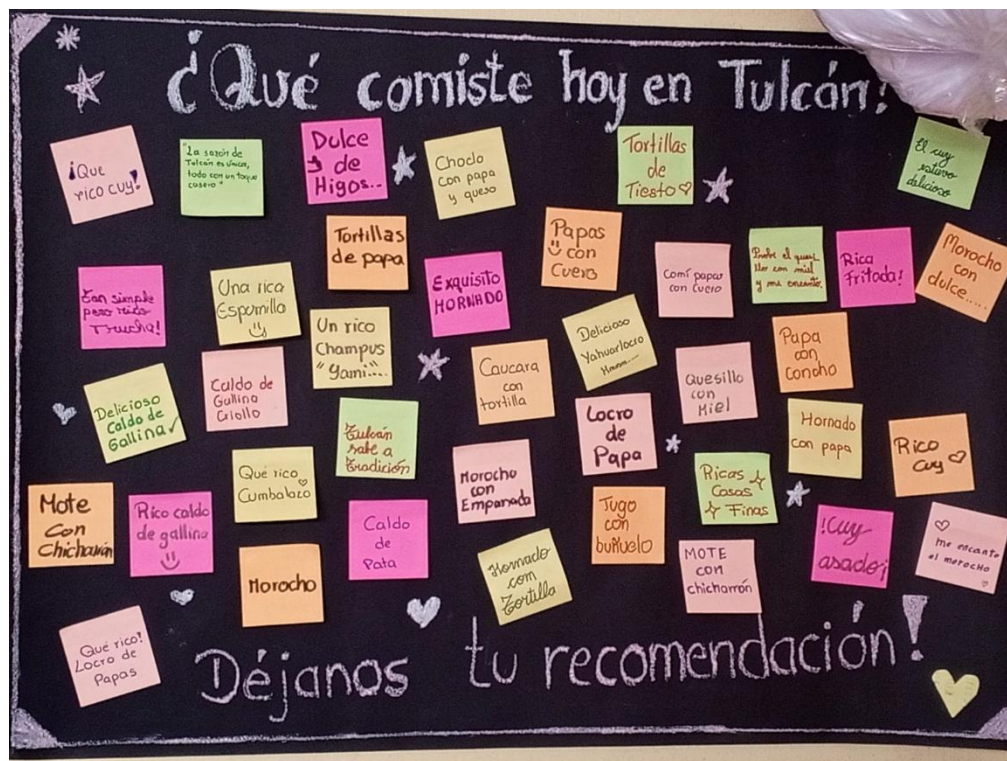 ¿Qué comiste hoy en Tulcán?
¡Que
rico cuy!
"La sazón de
Tulcán es única,
todo con un toque
casero"
Dulce
de
Higos...
Choclo
con papa
y queso
Tortillas
de
Tiesto
El cuy
estuvo
delicioso
Tortillas
de papa
Papas
con
Cuero
Comí papas
con cuero
Probé el quesi
llo con miel
y me encantó.
Rica
Fritada!
Morocho
con
dulce.....
Tan simple
pero rico
Trucha!
Una rica
Espumilla
Exquisito
HORNADO
Un rico
Champus
"Yami"...
Delicioso
Yahuarlocro
Hmm....
Papa
con
Concho
Caucara
con
tortilla
Quesillo
con
Miel
Delicioso
Caldo de
Gallina
Caldo de
Gallina
Criollo
Tulcán
sabe a
tradición
Locro
de
Papa
Hornado
con papa
Rico
Cuy
Qué rico
Cumbalazo
Morocho
con
Empanada
Ricas
Cosas
Finas
Mote
Con
Chicharrón
Rico caldo
de gallina
Caldo
de
Pata
Tugo
con
buñuelo
!Cuy
asado¡
Me encanto
el morocho
Morocho
Hornado
con
Tortilla
MOTE
con
chicharrón
Qué rico!
Locro de
Papas
Déjanos tu recomendación!